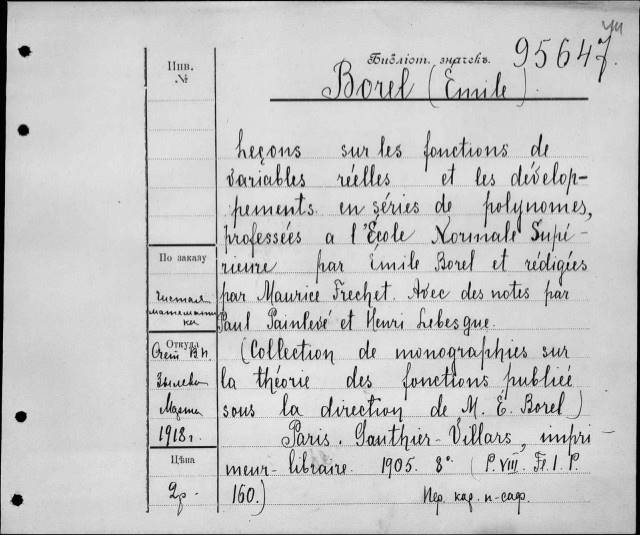 95647
Инв.
№
Библіот. значекъ.
Borel (Émile).
Leçons sur les fonctions de
variables réelles et les dévelop-
pements en séries de polynomes,
professées a l'École Normale Supé-
rieure par Émile Borel et rédigées
par Maurice Frechet. Avec des notes par
Paul Painlevé et Henri Lebesgue.
(Collection de monographies sur
la théorie des fonctions publiée
sous la direction de M. É. Borel)
Paris. Gauthier-Villars, impri-
meur-libraire. 1905. 8° (P. VIII. Fr. I. P.
160.)
Пер. кар. п-саф.
По заказу
Чистая
математи
ка
Откуда
Счет
Марта
1918 г.
Цѣна
2р.